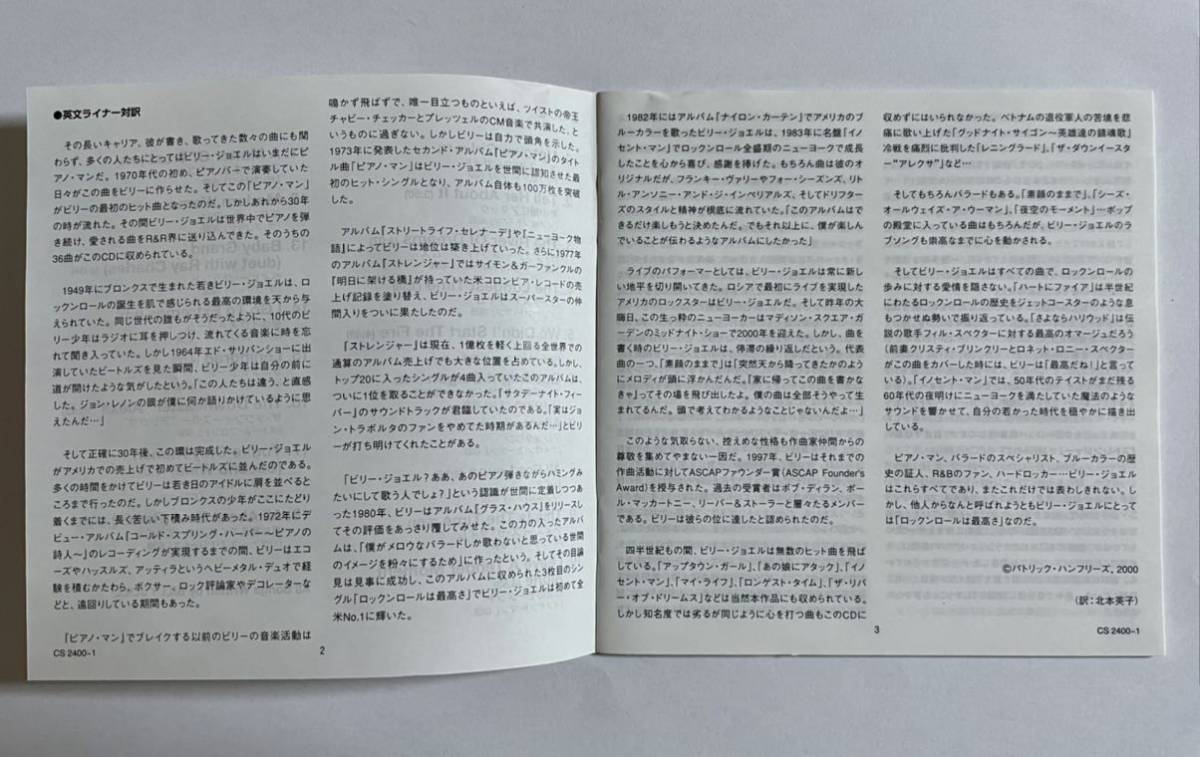 ●英文ライナー対訳
その長いキャリア、彼が書き、歌ってきた数々の曲にも関
わらず、多くの人たちにとってはビリー・ジョエルはいまだにピ
アノ・マンだ。1970年代の初め、ピアノバーで演奏していた
日々がこの曲をビリーに作らせた。そしてこの「ピアノ・マン」
がビリーの最初のヒット曲となったのだ。しかしあれから30年
の時が流れた。その間ビリー・ジョエルは世界中でピアノを弾
き続け、愛される曲をR&R界に送り込んできた。そのうちの
36曲がこのCDに収められている。
1949年にブロンクスで生まれた若きビリー・ジョエルは、ロ
ックンロールの誕生を肌で感じられる最高の環境を天から与
えられていた。同じ世代の誰もがそうだったように、10代のビ
リー少年はラジオに耳を押しつけ、流れてくる音楽に時を忘
れて聞き入っていた。しかし1964年エド・サリバンショーに出
演していたビートルズを見た瞬間、ビリー少年は自分の前に
道が開けたような気がしたという。「この人たちは違う、と直感
した。ジョン・レノンの眼が僕に何か語りかけているように思
えたんだ…」
そして正確に30年後、この環は完成した。ビリー・ジョエル
がアメリカでの売上げで初めてビートルズに並んだのである。
多くの時間をかけてビリーは若き日のアイドルに肩を並べると
ころまで行ったのだ。しかしブロンクスの少年がここにたどり
着くまでには、長く苦しい下積み時代があった。1972年にデ
ビュー・アルバム「コールド・スプリング・ハーバー〜ピアノの
詩人〜」のレコーディングが実現するまでの間、ビリーはエコ
ーズやハッスルズ、アッティラというヘビーメタル・デュオで経
験を積むかたわら、ボクサー、ロック評論家やデコレーターな
どと、遠回りしている期間もあった。
「ピアノ・マン」でブレイクする以前のビリーの音楽活動は
CS 2400-1
2
鳴かず飛ばずで、唯一目立つものといえば、ツイストの帝王
チャビー・チェッカーとプレッツェルのCM音楽で共演した、と
いうものに過ぎない。しかしビリーは自力で頭角を示した。
1973年に発表したセカンド・アルバム「ピアノ・マン」のタイト
ル曲「ピアノ・マン」はビリーを世間に認知させた最
初のヒット・シングルとなり、アルバム自体も100万枚を突破
した。
アルバム「ストリートライフ・セレナーデ」や「ニューヨーク物
語」によってビリーは地位は築き上げていった。さらに1977年
のアルバム「ストレンジャー」ではサイモン＆ガーファンクルの
「明日に架ける橋」が持っていた米コロンビア・レコードの売
上げ記録を塗り替え、ビリー・ジョエルはスーパースターの仲
間入りをついに果たしたのだ。
「ストレンジャー」は現在、1億枚を軽く上回る全世界での
通算のアルバム売上げでも大きな位置を占めている。しかし、
トップ20に入ったシングルが4曲入っていたこのアルバムは、
ついに1位を取ることができなかった。「サタデーナイト・フィ
ーバー」のサウンドトラックが君臨していたのである。「実はジョ
ン・トラボルタのファンをやめてた時期があるんだ…」とビリ
ーが打ち明けてくれたことがある。
「ビリー・ジョエル?ああ、あのピアノ弾きながらハミングみ
たいにして歌う人でしょ?」という認識が世間に定着しつつあ
った1980年、ビリーはアルバム「グラス・ハウス」をリリースし
てその評価をあっさり覆してみせた。この力の入ったアルバ
ムは、「僕がメロウなバラードしか歌わないと思っている世間
のイメージを粉々にするため」に作ったという。そしてその目論
見は見事に成功し、このアルバムに収められた3枚目のシン
グル「ロックンロールは最高さ」でビリー・ジョエルは初めて全
米No.1に輝いた。
1982年にはアルバム「ナイロン・カーテン」でアメリカのブ
ルーカラーを歌ったビリー・ジョエルは、1983年に名盤「イノ
セント・マン」でロックンロール全盛期のニューヨークで成長
したことを心から喜び、感謝を捧げた。もちろん曲は彼のオ
リジナルだが、フランキー・ヴァリーやフォー・シーズンズ、リト
ル・アンソニー・アンド・ジ・インペリアルズ、そしてドリフター
ズのスタイルと精神が根底に流れていた。「このアルバムはで
きるだけ楽しもうと決めたんだ。でもそれ以上に、僕が楽しん
でいることが伝わるようなアルバムにしたかった」
ライブのパフォーマーとしては、ビリー・ジョエルは常に新し
い地平を切り開いてきた。ロシアで最初にライブを実現した
アメリカのロックスターはビリー・ジョエルだ。そして昨年の大
晦日、この生っ粋のニューヨーカーはマディソン・スクエア・ガ
ーデンのミッドナイト・ショーで2000年を迎えた。しかし、曲を
書く時のビリー・ジョエルは、停滞の繰り返しだという。代表
曲の一つ、「素顔のままで」は「突然天から降ってきたかのよう
にメロディが頭に浮かんだんだ。『家に帰ってこの曲を書かな
きゃ』ってその場を飛び出したよ。僕の曲は全部そうやって生
まれてるんだ。頭で考えてわかるようなことじゃないんだよ…」
このような気取らない、控えめな性格も作曲家仲間からの
尊敬を集めてやまない一因だ。1997年、ビリーはそれまでの
作曲活動に対してASCAPファウンダー賞(ASCAP Founder's
Award)を授与された。過去の受賞者はボブ・ディラン、ポー
ル・マッカートニー、リーバー&ストーラーと層々たるメンバー
である。ビリーは彼らの位に達したと認められたのだ。
四半世紀もの間、ビリー・ジョエルは無数のヒット曲を飛ば
している。「アップタウン・ガール」、「あの娘にアタック」、「イノ
セント・マン」、「マイ・ライフ」、「ロンゲスト・タイム」、「ザ・リバ
ー・オブ・ドリームス」などは当然本作品にも収められている。
しかし知名度では劣るが同じように心を打つ曲もこのCDに
3
収めずにはいられなかった。ベトナムの退役軍人の苦境を悲
痛に歌い上げた「グッドナイト・サイゴン〜英雄達の鎮魂歌」
冷戦を痛烈に批判した「レニングラード」、「ザ・ダウンイースタ
ー“アレクサ”」など…
そしてもちろんバラードもある。「素顔のままで」、「シーズ・
オールウェイズ・ア・ウーマン」、「夜空のモーメント」…ポップ
の殿堂に入っている曲はもちろんだが、ビリー・ジョエルのラ
ブソングも崇高なまでに心を動かされる。
そしてビリー・ジョエルはすべての曲で、ロックンロールの
歩みに対する愛情を隠さない。「ハートにファイア」は半世紀
にわたるロックンロールの歴史をジェットコースターのような息
もつかせぬ勢いで振り返っている。「さよならハリウッド」は伝
説の歌手フィル・スペクターに対する最高のオマージュだろう
(前妻クリスティ・ブリンクリーとロネット・ロニー・スペクター
がこの曲をカバーした時には、ビリーは「最高だね!」と言って
いる)。「イノセント・マン」では、50年代のテイストがまだ残る
60年代の夜明けにニューヨークを満たしていた魔法のような
サウンドを響かせて、自分の若かった時代を穏やかに描き出
している。
ピアノ・マン、バラードのスペシャリスト、ブルーカラーの歴
史の証人、R&Bのファン、ハードロッカー…ビリー・ジョエル
はこれらすべてであり、またこれだけでは表わしきれない。し
かし、他人からなんと呼ばれようともビリー・ジョエルにとって
は「ロックンロールは最高さ」なのだ。
©パトリック・ハンフリーズ, 2000
(訳：北本英子)
CS 2400-1